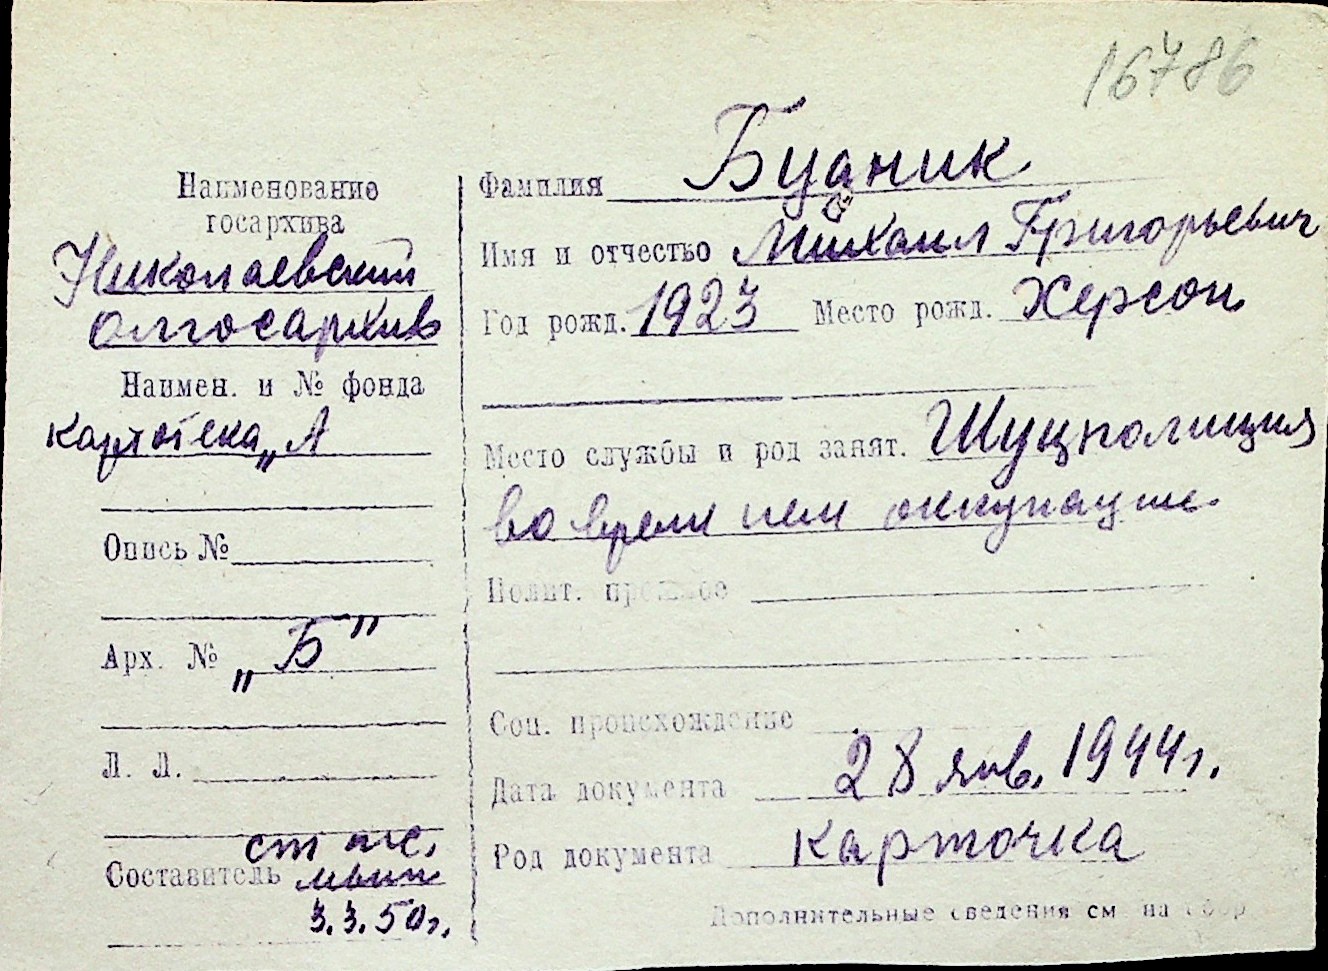 16786
Наименование
госархива
Николаевский
олгосархив
Наимен. и № фонда
картотека „А
Опись №
Арх. № „Б”
Л. Л.
ст
Составитель
3.3.50г.
Фамилия Будник
Имя и отчество Михаил Григорьевич
Год рожд. 1923 Место рожд. Херсон
Место службы и род занят. Шуцполиция
во врем нем оккупации.
Полит. прошлое
Соц. происхождение
Дата документа 28 янв. 1944г.
Род документа карточка
Дополнительные сведения см на обор